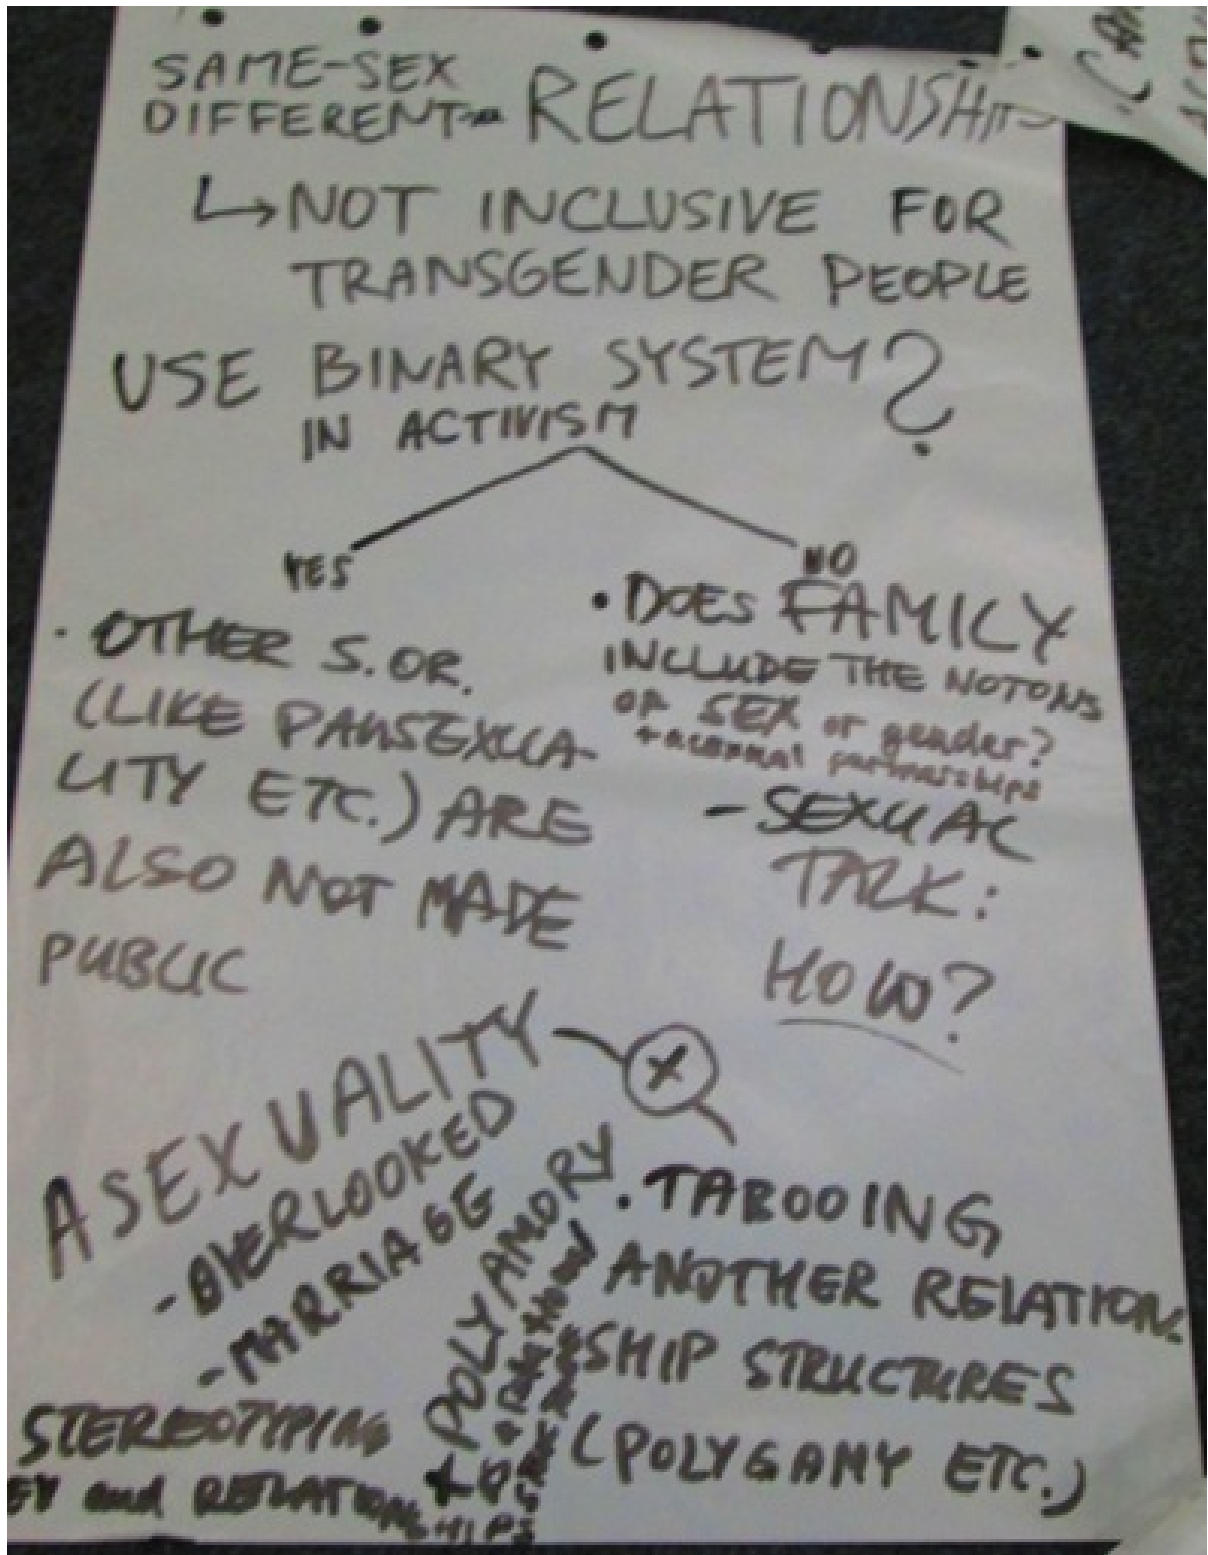 SAME-SEX
DIFFERENT-" RELATIONSHIPS
↳NOT INCLUSIVE FOR
TRANSGENDER PEOPLE
USE BINARY SYSTEM?
IN ACTIVISM
YES
· OTHER S. OR.
(LIKE PANSEXUA-
LITY ETC.) ARE
ALSO NOT MADE
PUBLIC
NO
• DOES FAMILY
INCLUDE THE NOTONS
OF SEX or gender?
partnerships
- SEXUAL
TALK:
HOW?
ASEXUALITY
- OVERLOOKED
- MARRIAGE
STEREOTYPING
and RELATIONSHIPS
POLYAMORY
• TABOOING
ANOTHER RELATION-
SHIP STRUCTURES
(POLYGAMY ETC.)